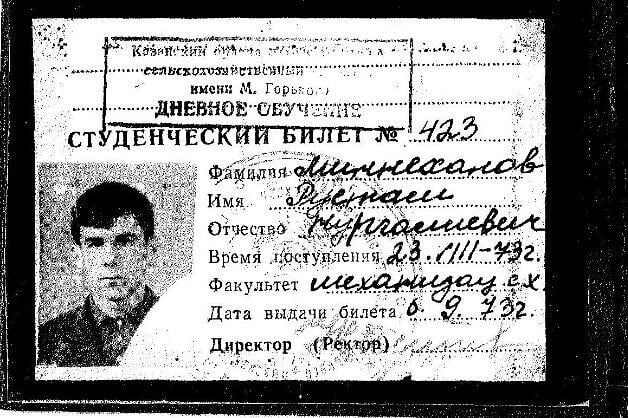 Казанский ордена
сельскохозяйственный
имени М. Горького
ДНЕВНОЕ ОБУЧЕНИЕ
СТУДЕНЧЕСКИЙ БИЛЕТ № 423
Фамилия Минниханов
Имя Рустам
Отчество Нургалиевич
Время поступления 23.VIII-73г.
Факультет механизац. с.х.
Дата выдачи билета 6.9.73г.
Директор (Ректор)